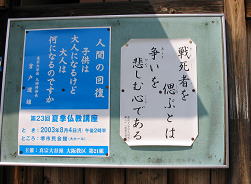 戦死者を
偲ぶとは
争いを
悲しむ心である
人間の回復
子供は
大人になるけど
大人は
何になるのですか
第23回 夏季仏教講座
とき：2003年8月4日(月) 午後2時半
ところ：堺市民会館
主催：真宗大谷派 大阪教区 第21組